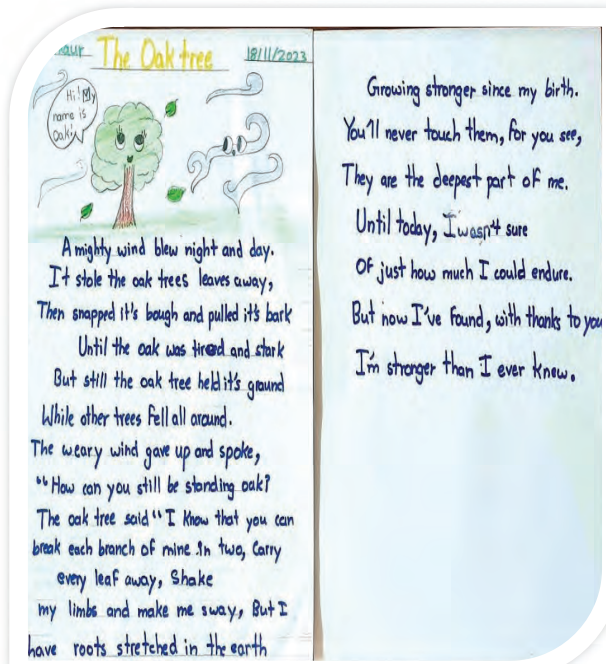 The Oak tree
18/11/2023
Hi! My
name is
Oak!
A mighty wind blew night and day.
It stole the oak trees leaves away,
Then snapped it's bough and pulled it's bark
Until the oak was tired and stark
But still the oak tree held it's ground
While other trees fell all around.
The weary wind gave up and spoke,
"How can you still be standing oak?
The oak tree said "I know that you can
break each branch of mine in two, Carry
every leaf away, Shake
my limbs and make me sway, But I
have roots stretched in the earth
Growing stronger since my birth.
You'll never touch them, for you see,
They are the deepest part of me.
Until today, I wasn't sure
Of just how much I could endure.
But now I've found, with thanks to you
I'm stronger than I ever knew.